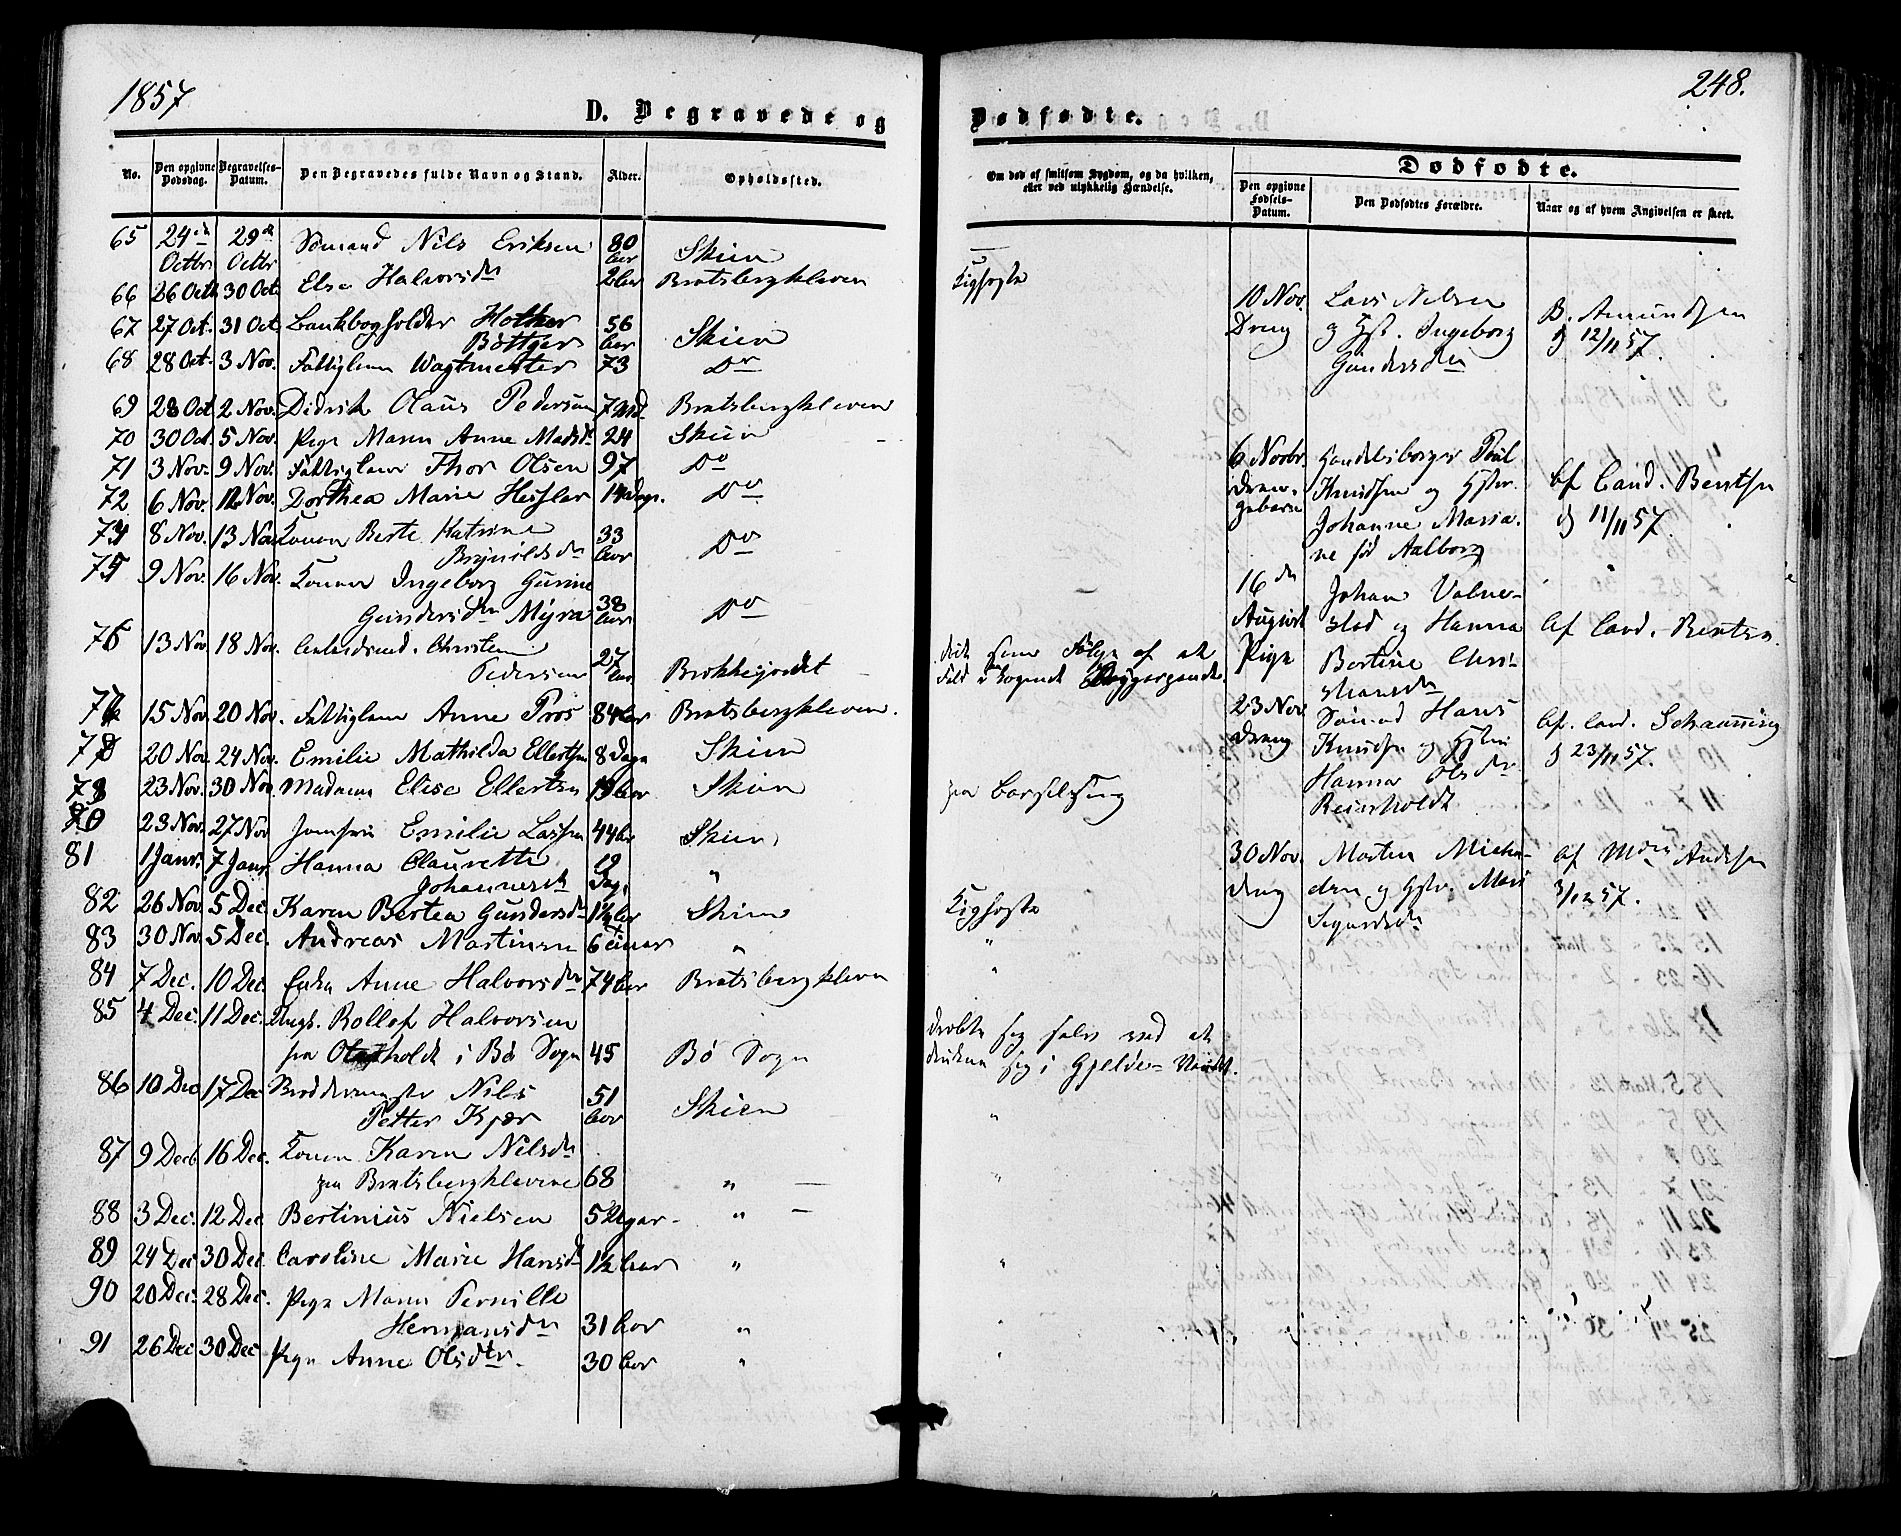 1857
D. Begravede og
No.
Den opgivne Dødsdag.
Begravelses-Datum.
Den Begravedes fulde Navn og Stand.
Alder.
Opholdssted.
65 24de Octbr 29de Octbr Sömand Nils Eriksen 80 Aar Skien
66 26 Octb 30 Oct. Else Halvorsdtr 2 Aar Bratsbergkleven
67 27 Oct. 31 Oct. Bankbogholder Hother
Bøttger 56 Aar Skien
68 28 Oct. 3 Nov. Fattiglem Wagtmester 73 Do
69 28 Oct 2 Nov. Didrik Olaus Pedersen 7 Md. Bratsbergkleven
70 30 Oct. 5 Nov. Pige Maren Anne Madsdr 24 Skien
71 3 Nov. 9 Nov. Fattiglem Thor Olsen 97 Do
72 6 Nov. 12 Nov. Dorthea Marie Hessler 14 Dage. Do
8 Nov. 13 Nov Konen Berte Katrine
Brynildsdtr 33 Aar Do
75 9 Nov. 16 Nov. Konen Ingeborg Gurine
Gundersdtr Myra 38 Aar Do
76 13 Nov 18 Nov. Arbeidsmd. Christen
Pedersen 27 Aar
15 Nov 20 Nov. Fattiglem Anne Pros 84 Aar Bratsbergkleven.
20 Nov. 24 Nov. Emilie Mathilda Ellertsen 8 Dage Skien
23 Nov. 30 Nov. Madame Elise Ellertsen Aar Skien
23 Nov. 27 Nov Jomfru Emilie Lassen 44 Aar Skien
81 1 Janr. 7 Janr Hanna Claurette
Johannesdtr 19 Dag. "
82 26 Nov 5 Dec. Karen Bertea Gundersdr 1½ Aar Skien
83 30 Nov. 5 Dec. Andreas Martinsen 6 Timer "
84 7 Dec. 10 Dec. Enke Anne Halvorsdtr 74 Aar Bratsbergkleven
85 4 Dec. 11 Dec. Ungk. Rollef Halvorsen
fra i Bø Sogn 45 Bø Sogn
86 10 Dec 17 Dec Nils
Petter Kjær 51 Aar Skien
87 9 Decb 16 Dec. Konen Karen Nilsdtr
fra Bratsbergklevene 68 "
88 3 Dec. 12 Dec Bertinius Nielsen 5 Uger "
89 24 Dec 30 Dec. Caroline Marie Hansdr 1½ Aar "
90 20 Dec. 28 Dec. Pige Maren Pernille
Hermansdtr 31 Aar "
91 26 Dec 30 Dec. Pige Anne Olsdtr. 30 Aar "
248.
Dødfødte.
Om død af smitsom Sygdom, og da hvilken, eller ved ulykkelig Hændelse.
Dødfødte.
Den opgivne Fødsels-Datum.
Den Dødfødtes Forældre.
Naar og af hvem Angivelsen er skeet.
Kighoste
død som Følge af et
Fald i kogende
paa Barselseng
Kighoste
"
"
dræbte sig selv ved at
drukne sig i Gjelde-Vandet.
"
"
10 Nov. Dreng
Lars Nilsen
og Hst. Ingeborg
Gundersdtr
B. Amundsen
d 12/11 57.
6 Novbr.
Handelsborger Poul
Knudsen og Hstr.
Johanne Maria-
ne fød Aalborg
Af Cand. Bentsen
d 11/11 57.
16de August Pige
Johan Valne-
stad og Hanna
Bertine Chri-
stiansdtr
Af Cand. Bentsen
23 Nov Dreng
Sömd Hans
Knudsen og Hstru
Hanna Olsdtr
Reierholdt
Af. Cand. Schanning
d 23/11 57.
30 Nov. Dreng
Morten Micha-
elsen og Hstr. Mari
Sigurdsdtr
af Andersen
3/12 57.